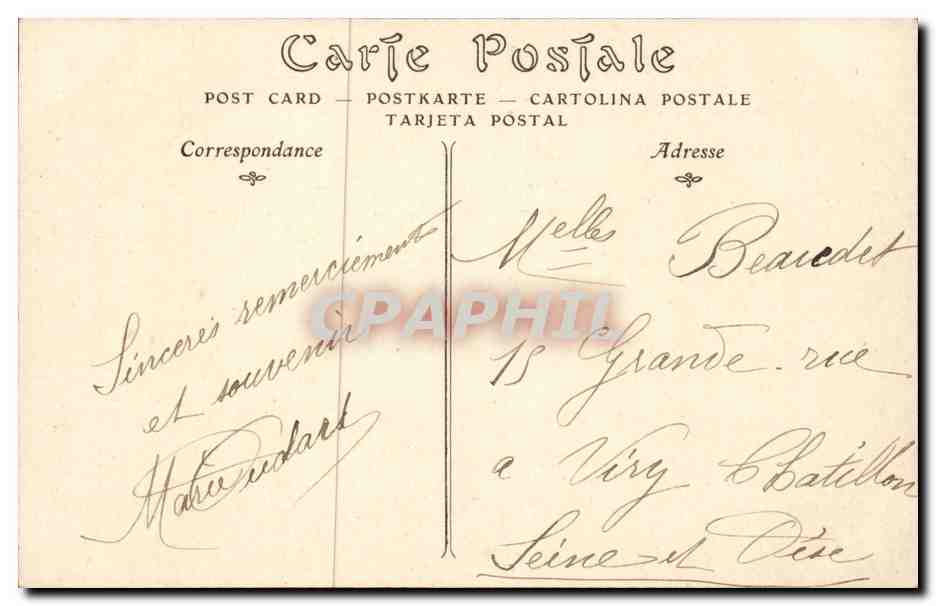 Carte Postale
POST CARD — POSTKARTE — CARTOLINA POSTALE
TARJETA POSTAL
Correspondance
Sincères remerciements
et souvenir
Marie
Adresse
Melles Beaudet
15 Grande rue
a Viry Chatillon
Seine et Oise
CPAPHIL